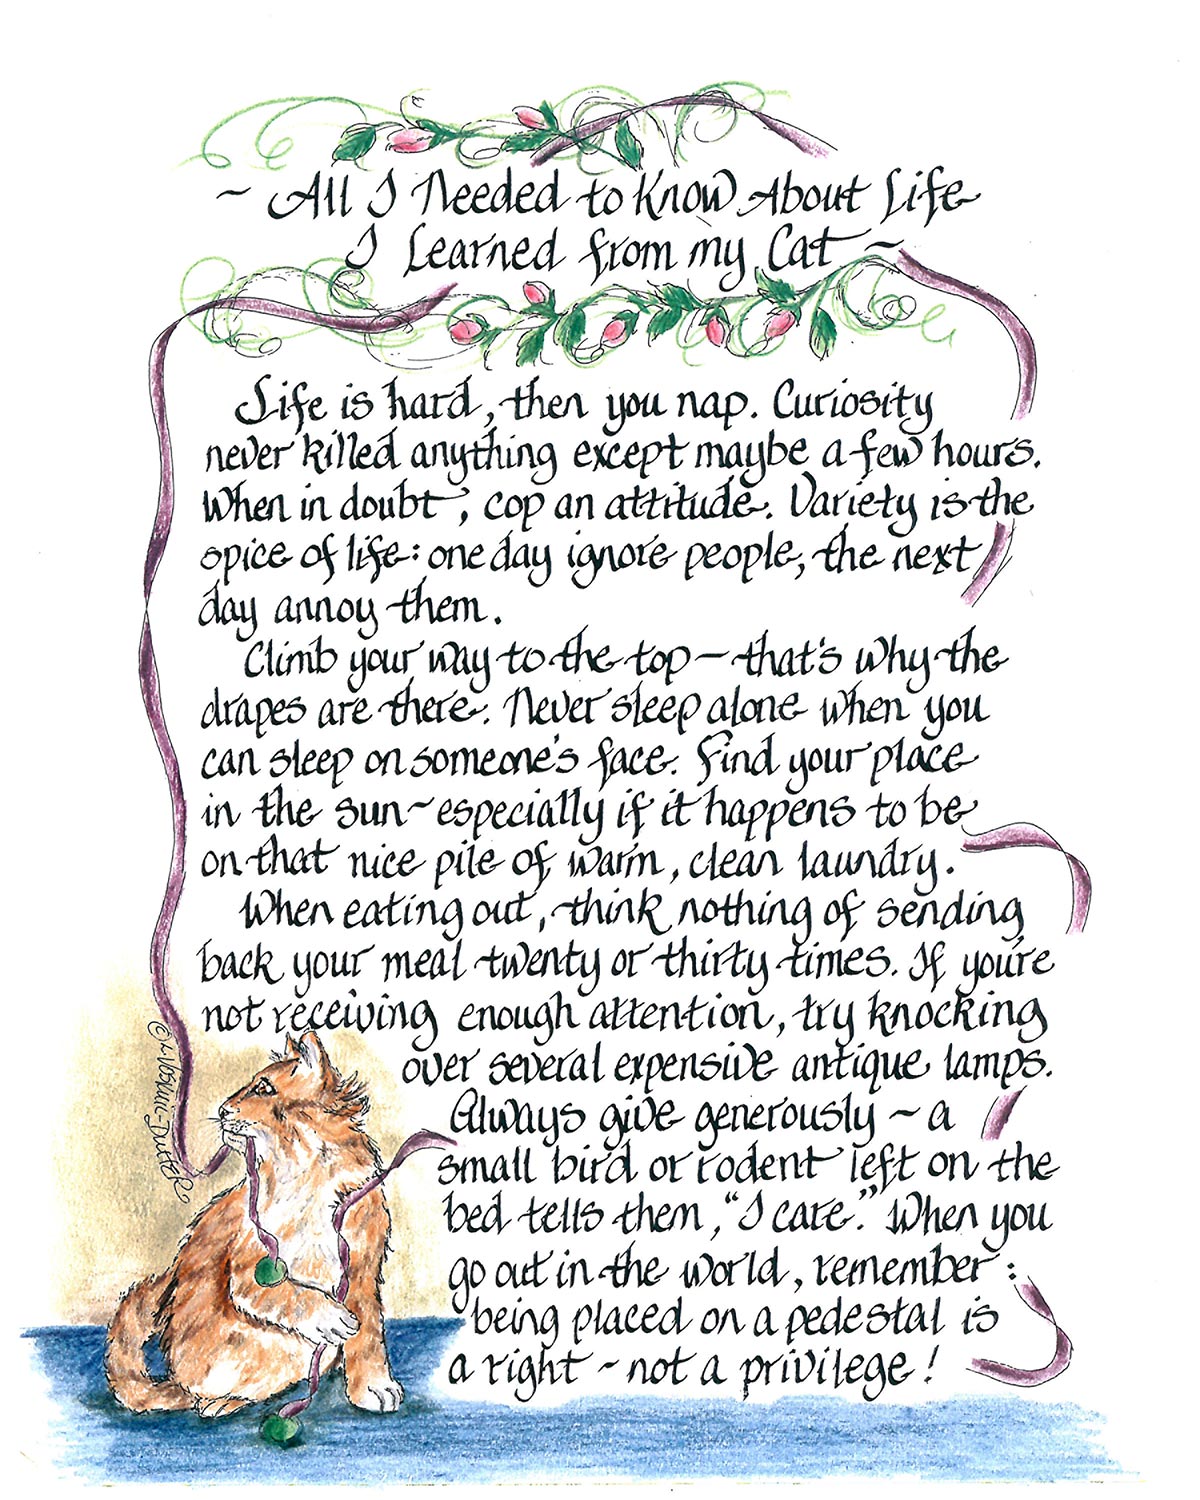 ~ All I Needed to Know About Life
I Learned from my Cat ~
Life is hard, then you nap. Curiosity
never killed anything except maybe a few hours.
When in doubt, cop an attitude. Variety is the
spice of life: one day ignore people, the next
day annoy them.
Climb your way to the top – that's why the
drapes are there. Never sleep alone when you
can sleep on someone's face. Find your place
in the sun ~ especially if it happens to be
on that nice pile of warm, clean laundry.
When eating out, think nothing of sending
back your meal twenty or thirty times. If you're
not receiving enough attention, try knocking
over several expensive antique lamps.
Always give generously ~ a
small bird or rodent left on the
bed tells them, "I care." When you
go out in the world, remember:
being placed on a pedestal is
a right ~ not a privilege!
©